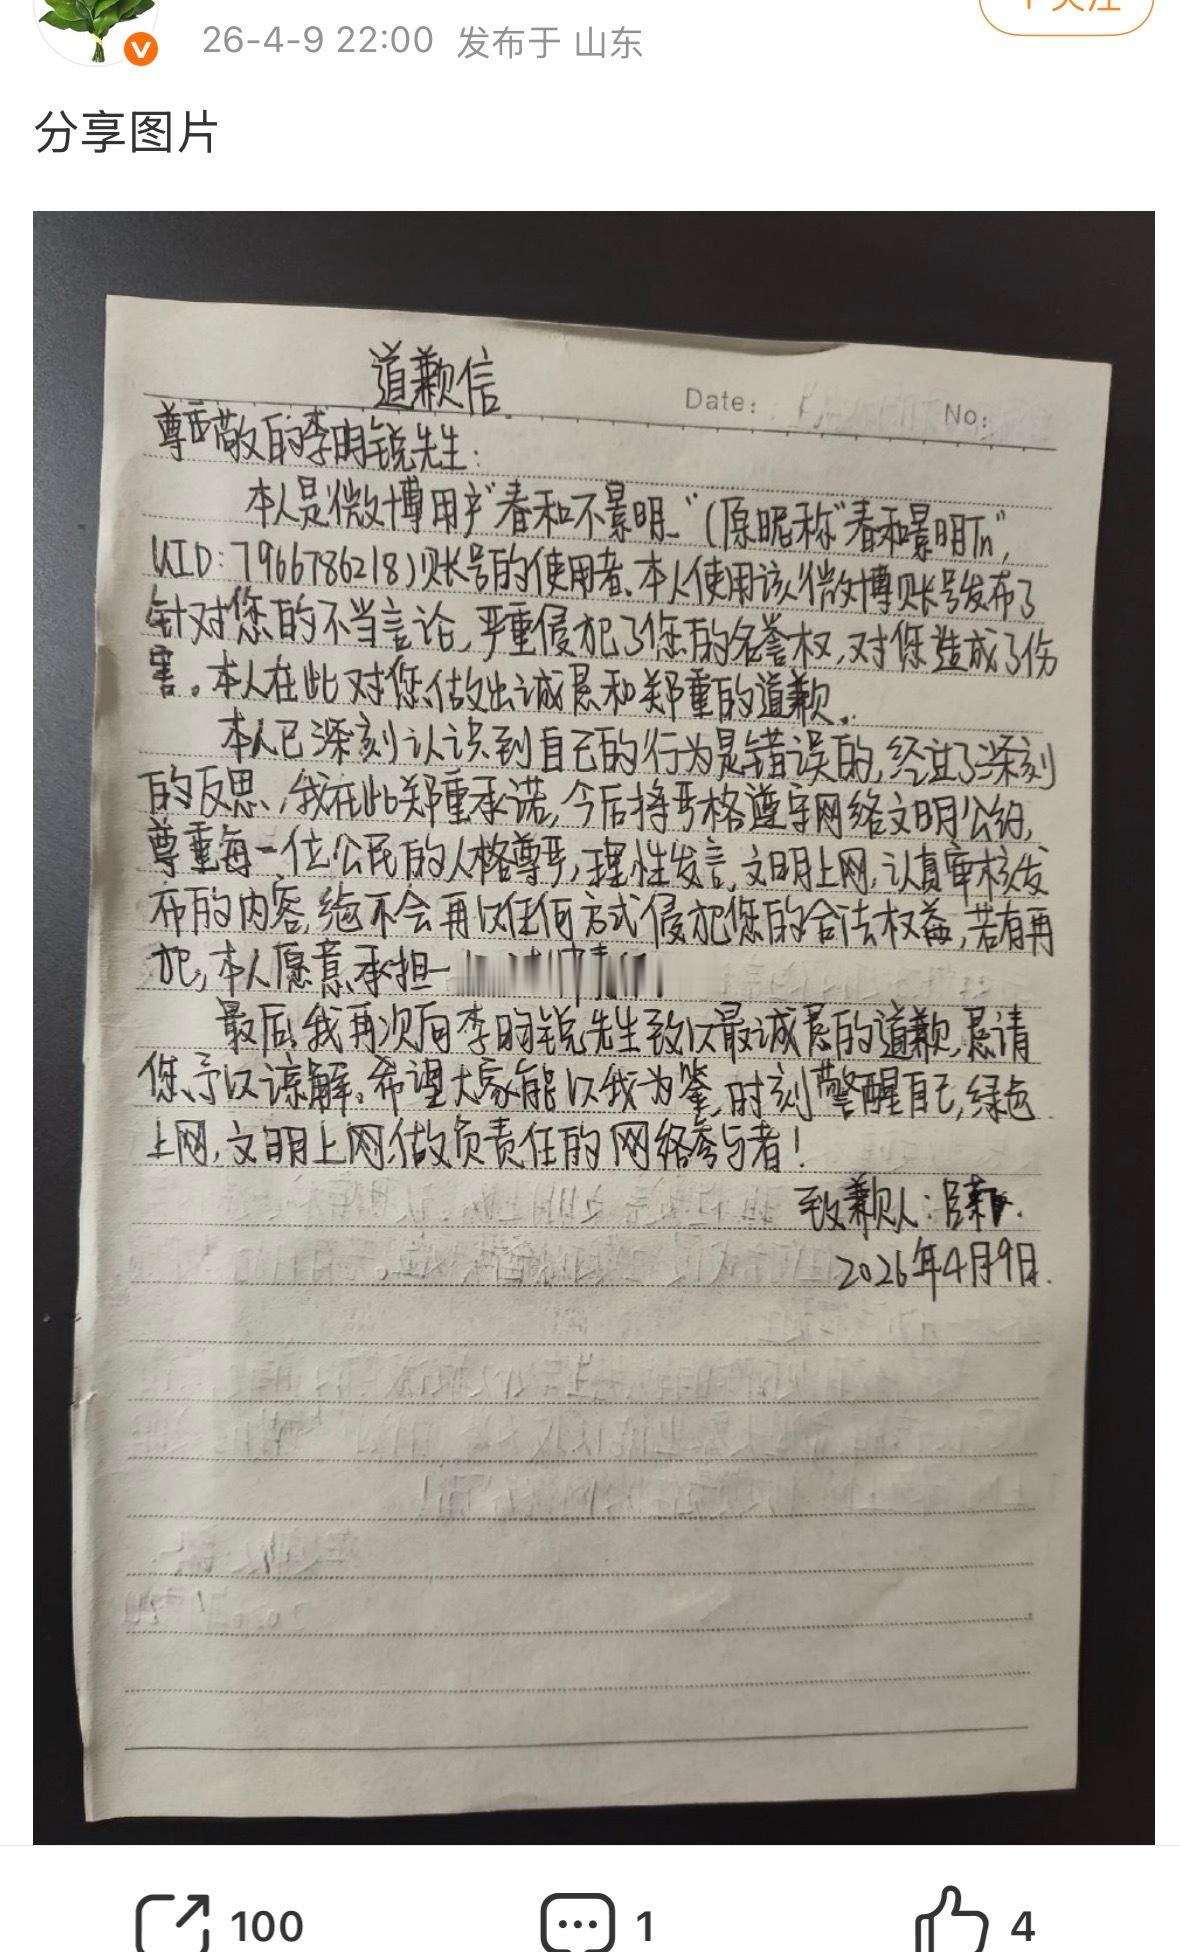 26-4-9 22:00 发布于 山东
关注
分享图片
道歉信
Date: No:
尊敬的李昀锐先生:
本人是微博用户"春和不景明_"(原昵称"春和景明Tn",
UID:7966786218)账号的使用者、本人使用该微博账号发布了
针对您的不当言论,严重侵犯了您的名誉权,对您造成了伤
害。本人在此对您做出诚恳和郑重的道歉.
本人已深刻认识到自己的行为是错误的,经过了深刻
的反思,我在此郑重承诺,今后将严格遵守网络文明公约,
尊重每一位公民的人格尊严,理性发言,文明上网,认真审核发
布的内容,绝不会再以任何方式侵犯您的合法权益,若有再
犯,本人愿意承担一
最后,我再次向李昀锐先生致以最诚恳的道歉,恳请
您予以谅解。希望大家能以我为鉴,时刻警醒自己,绿色
上网,文明上网,做负责任的网络参与者!
致歉人:
2026年4月9日.
100 1 4